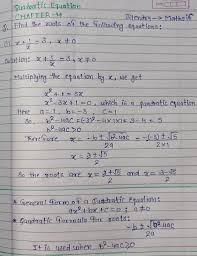 Quadratic Equation
CHAPTER-4
Q. Find the roots of the following equations:
(i) x + 1/x = 3, x ≠ 0
Solution: x + 1/x = 3, x ≠ 0
Multiplying the equation by x, we get
x² + 1 = 3x
x² - 3x + 1 = 0, which is a quadratic equation
Here a = 1, b = -3, c = 1
So b² - 4ac = (-3)² - 4×1×1 = 9 - 4 = 5
b² - 4ac > 0
Therefore x = -b ± √b² - 4ac / 2a = -(-3) ± √5 / 2×1
x = 3 ± √5 / 2
So the roots are x = 3 + √5 / 2 and x = 3 - √5 / 2
General form of a Quadratic Equation:
ax² + bx + c = 0 ; a ≠ 0
Quadratic formula for roots:
-b ± √b² - 4ac / 2a
It is used when b² - 4ac ≥ 0